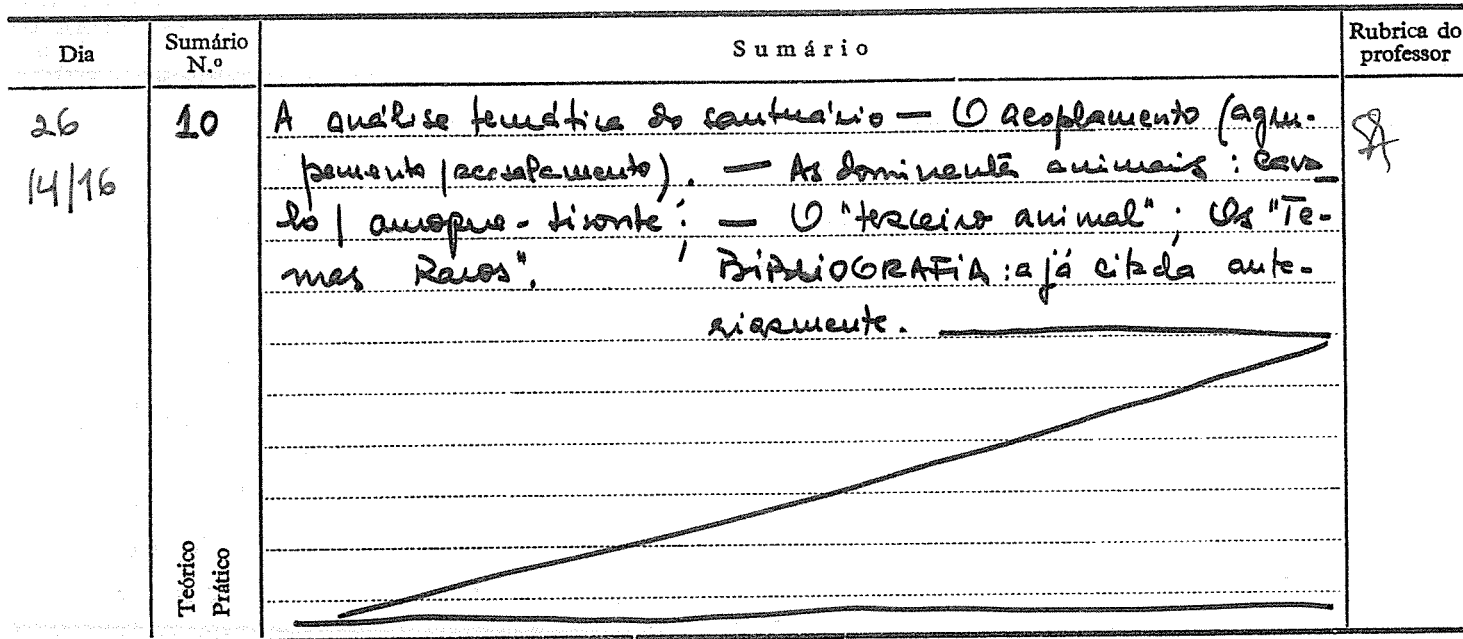 Dia
Sumário N.º
Sumário
Rubrica do professor
26
14/16
10
A análise temática do santuário — O acoplamento (agru-
pamento / acasalamento). — As dominantes animais : cava_
lo / auroque - bisonte ; — O "terceiro animal" ; Os "Te-
mas Raros". BIBLIOGRAFIA : a já citada ante-
riormente.
Teórico
Prático